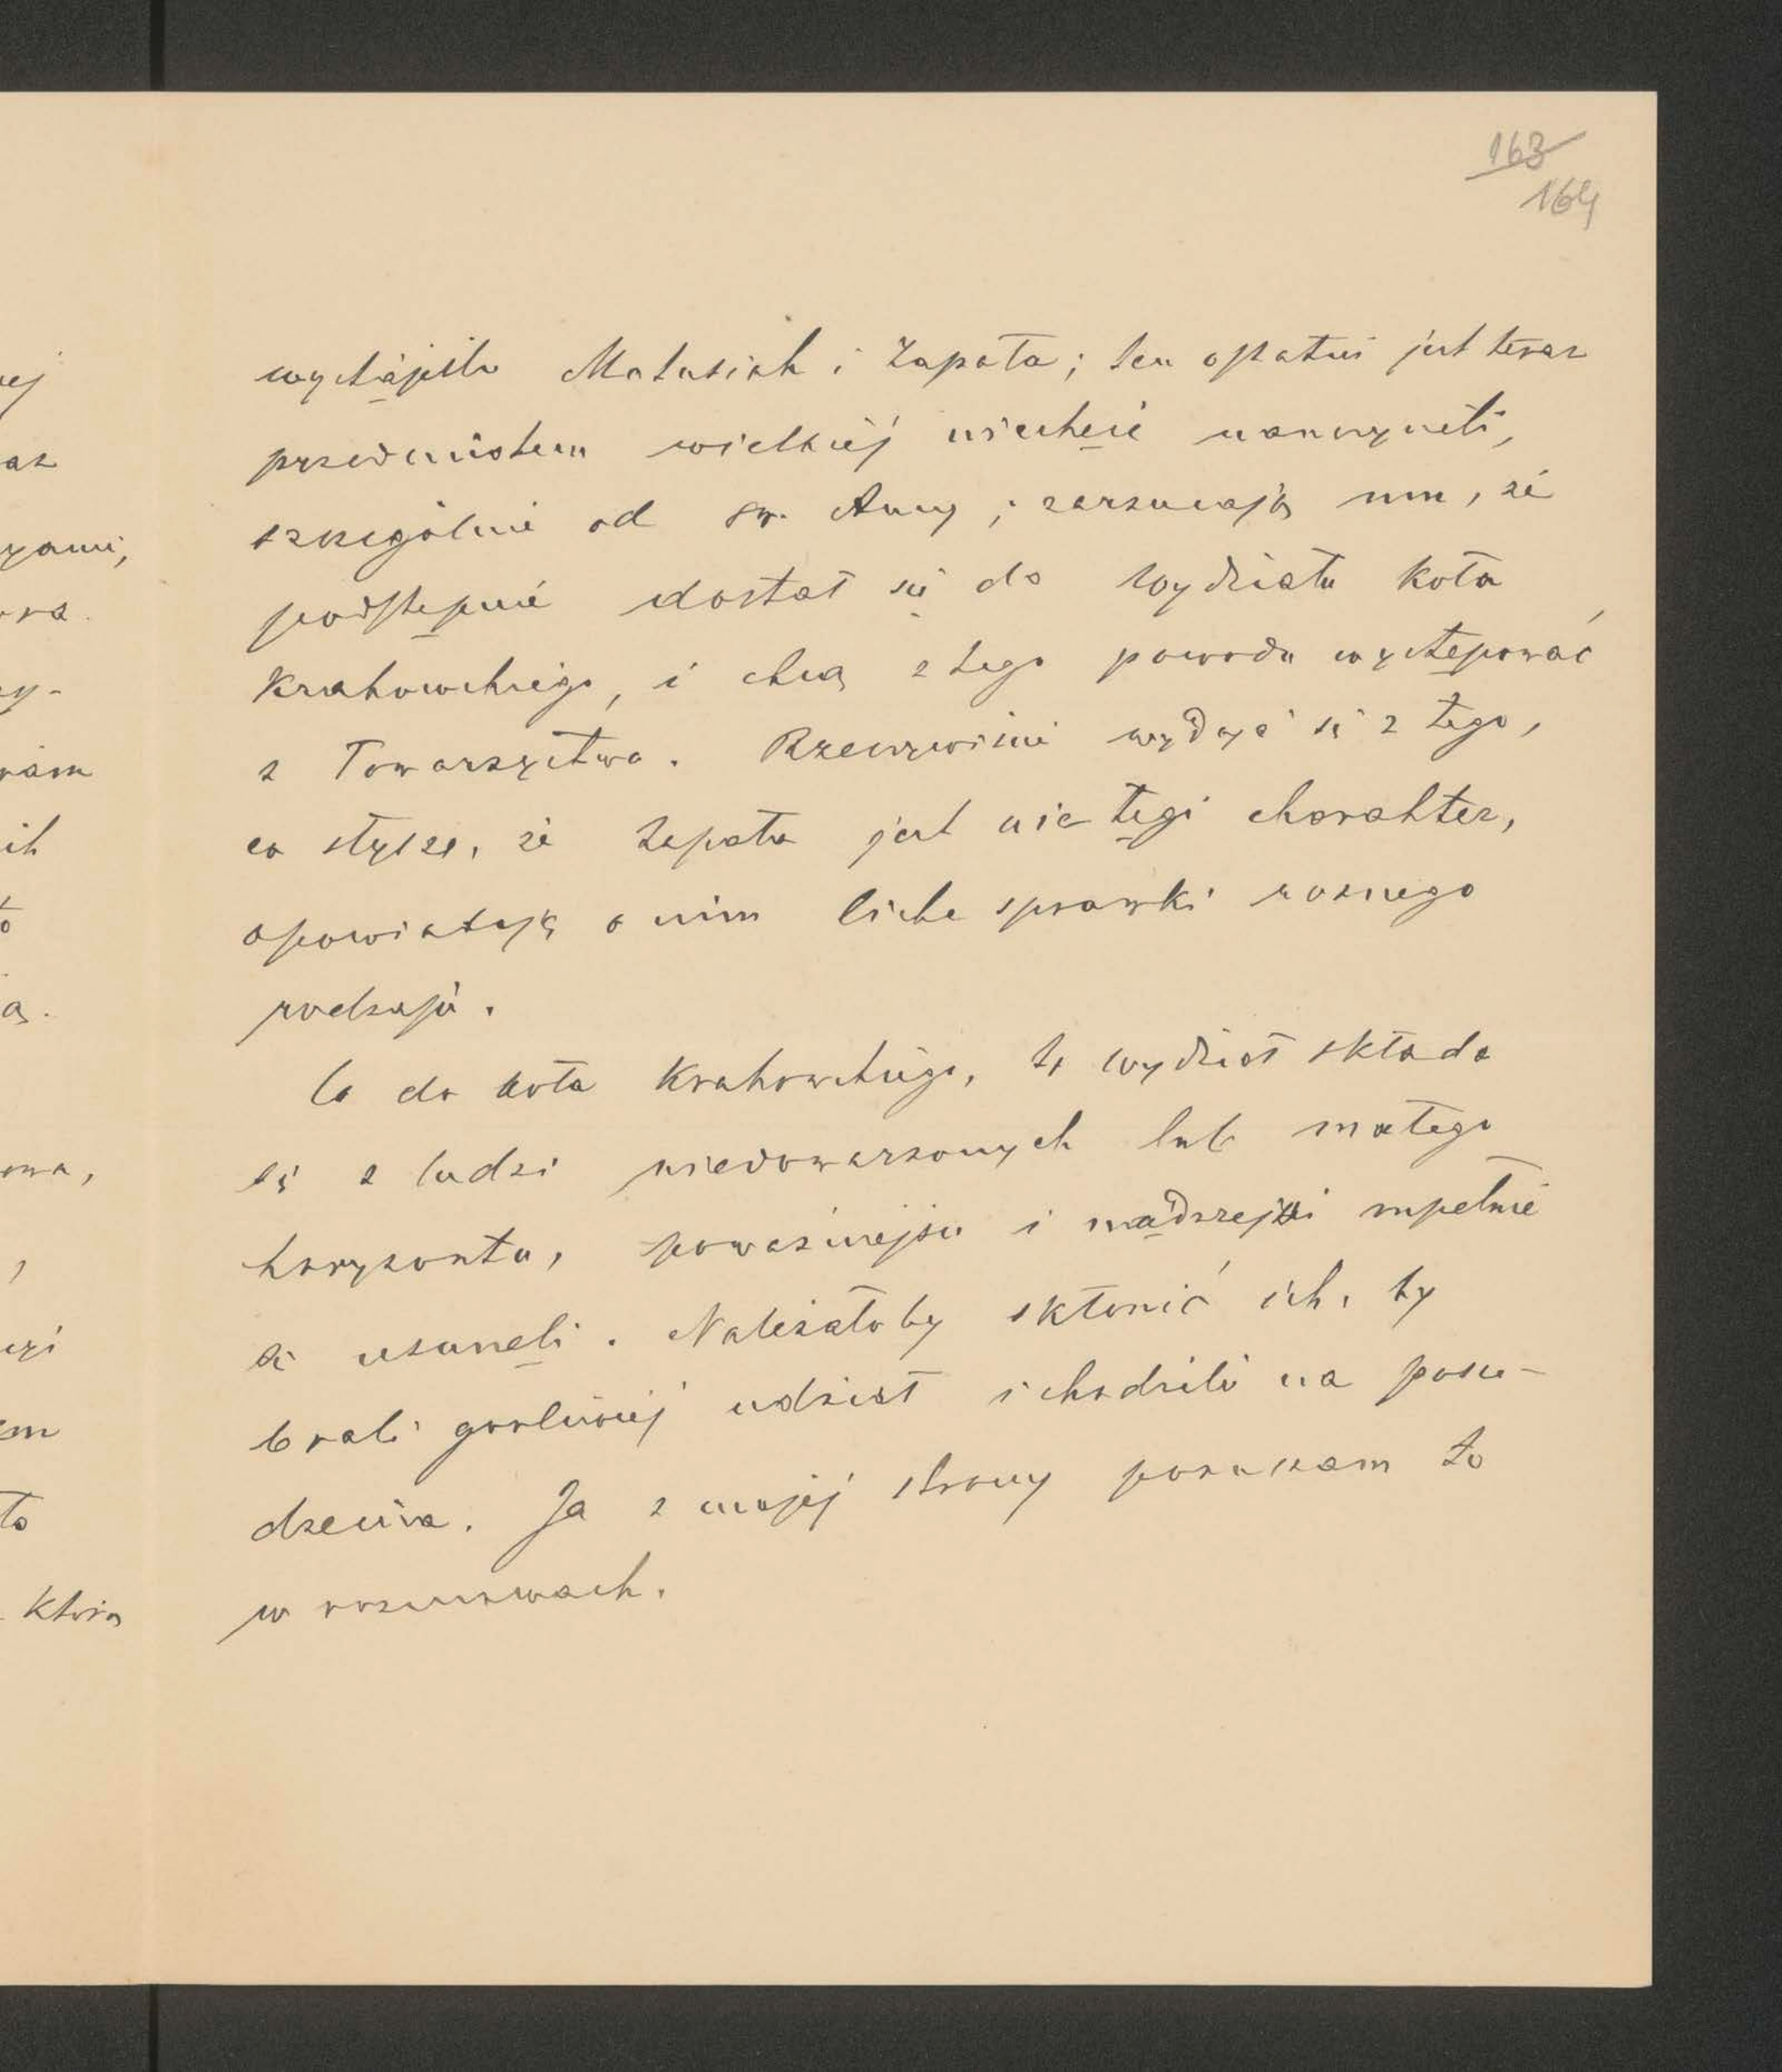 163
164
wystąpili Matusiak i Zapała; ten ostatni jest teraz
przedmiotem wielkiej niechęci nauczycieli,
szczególnie od św. Anny; zarzucają mu, że
podstępnie dostał się do Wydziału Koła
Krakowskiego, i chcą z tego powodu występować
z Towarzystwa. Rzeczywiście wydaje się z tego,
co słyszę, że Zapała jest nietęgi charakter,
opowiadają o nim liche sprawki rożnego
rodzaju.
Co do koła Krakowskiego, to wydział składa
się z ludzi niedowarzonych lub małego
horyzontu, poważniejsi i mądrzejsi zupełnie
się usunęli. Należałoby skłonić ich, by
brali gorliwiej udział i chodzili na posie-
dzenia. Ja z mojej strony poruszam to
w rozmowach.
ej
az
zami,
ora.
zy-
ich
ą.
owa,
,
em
to
która